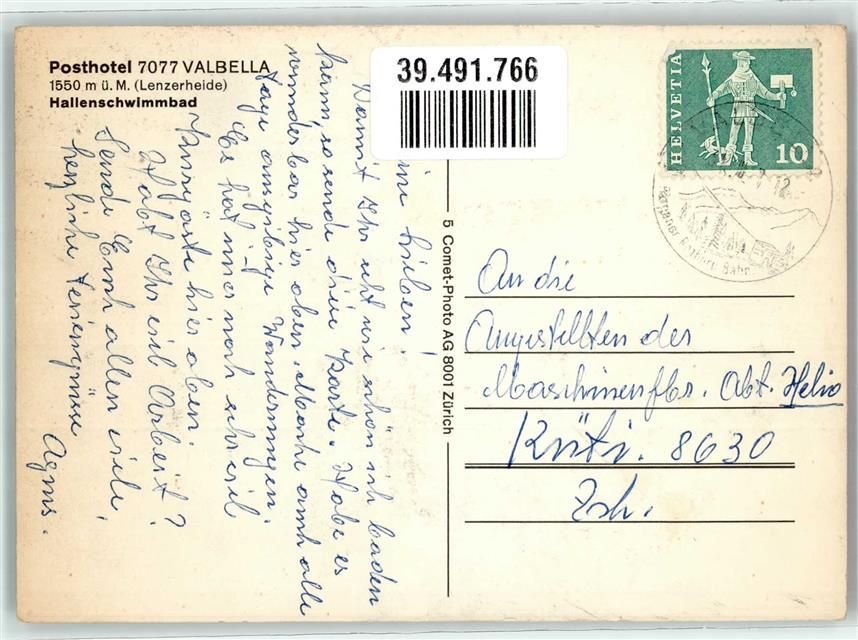 Posthotel 7077 VALBELLA
1550 m ü. M. (Lenzerheide)
Hallenschwimmbad
39.491.766
HELVETIA
10
Lieben!
Damit Ihr seht wie schön ich baden
kann, so sende diese Karte. Habe es
wunderbar hier oben. Mache auch alle
Tage ausgiebige Wanderungen.
Es hat immer noch sehr viel
Kurgäste hier oben.
Habt Ihr viel Arbeit?
Sende Euch allen viele,
herzliche Feriengrüsse
Agnes.
5 Comet-Photo AG 8001 Zürich
An die
Angestellten der
Maschinenfbr. Abt. Helio
Rüti. 8630
Zch.